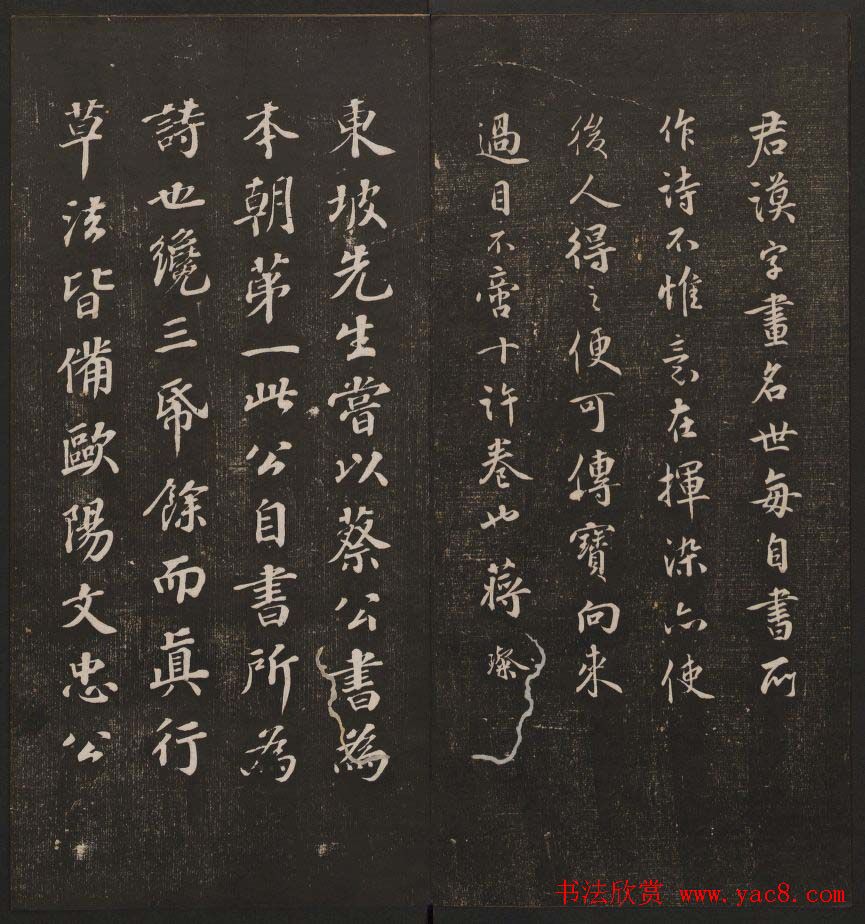 君謨字畫名世每自書所
作诗不惟意在揮染亦使
後人得之便可傳寶向來
過目不啻十许卷也蒋璨
東坡先生嘗以蔡公書為
本朝第一此公自書所為
詩也纔三帋餘而真行
草法皆備歐陽文忠公
书法欣赏 www.yac8.com